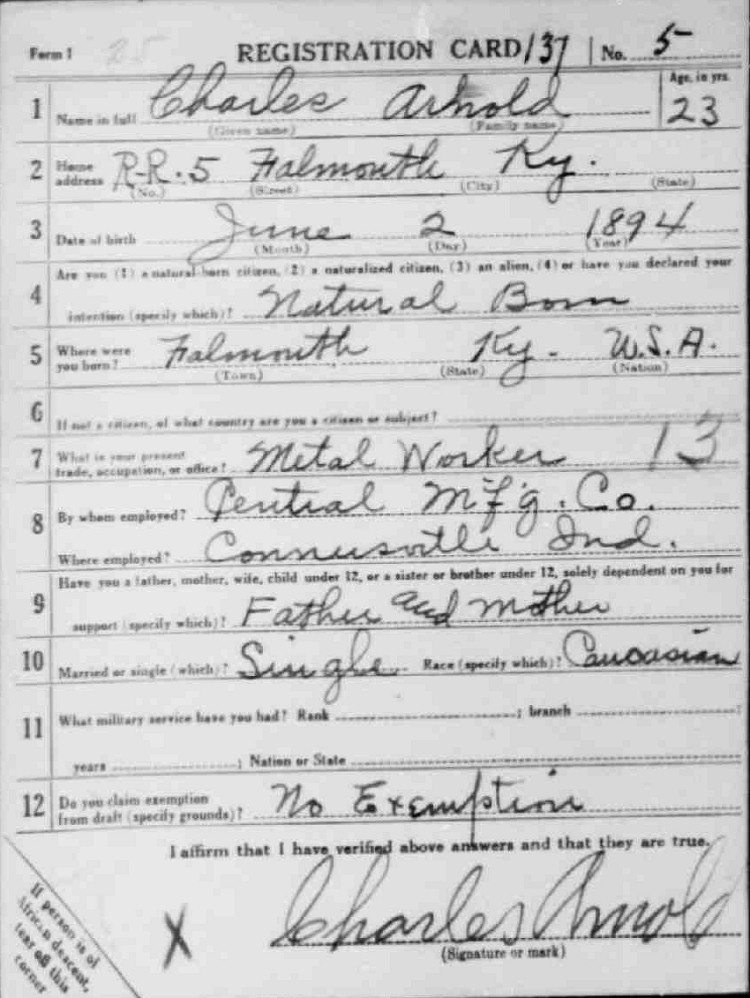 Form 1 25 REGISTRATION CARD 137 No. 5
1 Name in full Charles Arnold Age, in yrs. 23
(Given name) (Family name)
2 Home address R-R. 5 Falmouth Ky.
(No.) (Street) (City) (State)
3 Date of birth June 2 1894
(Month) (Day) (Year)
Are you (1) a natural-born citizen, (2) a naturalized citizen, (3) an alien, (4) or have you declared your
4 intention (specify which)? Natural Born
5 Where were you born? Falmouth Ky. U.S.A.
(Town) (State) (Nation)
6 If not a citizen, of what country are you a citizen or subject?
7 What is your present trade, occupation, or office? Metal Worker 13
8 By whom employed? Central Mf'g. Co.
Where employed? Connersville Ind.
Have you a father, mother, wife, child under 12, or a sister or brother under 12, solely dependent on you for
9 support (specify which)? Father and Mother
10 Married or single (which)? Single Race (specify which)? Caucasian
11 What military service have you had? Rank ; branch ;
years ; Nation or State
12 Do you claim exemption from draft (specify grounds)? No Exemption
I affirm that I have verified above answers and that they are true.
X Charles Arnold
(Signature or mark)
If person is of
African descent,
tear off this
corner